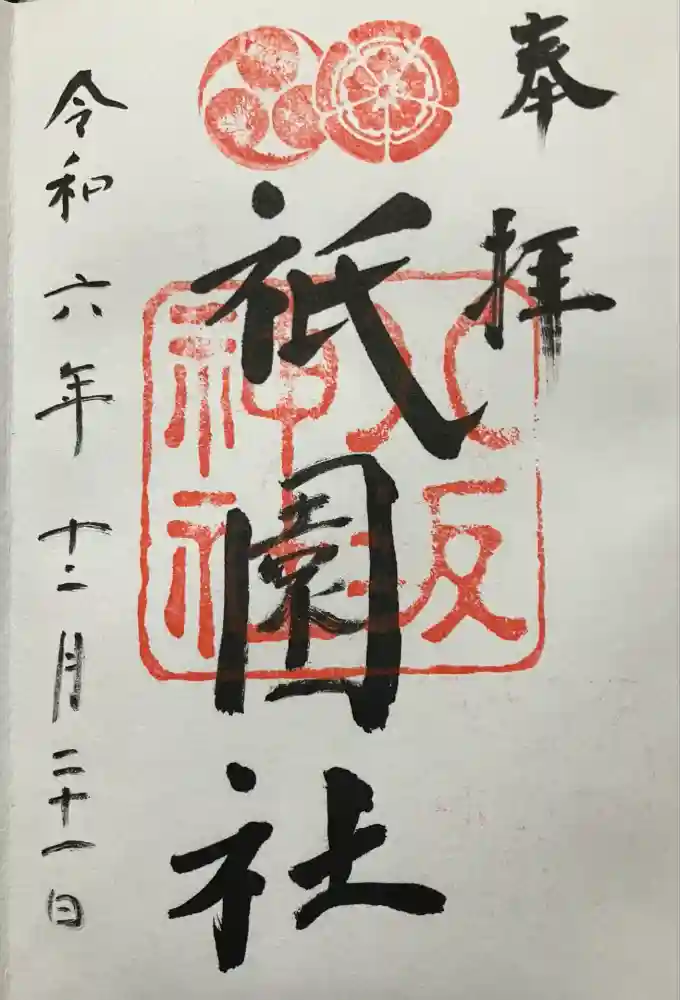 奉拝
八坂
神社
祇園社
令和六年十二月二十一日